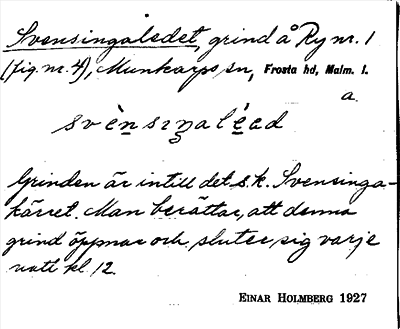 Svensingaledet, grind å Ry nr. 1
(fig. nr. 4), Munkarps sn, Frosta hd, Malm. l.
a.
svènsiŋaléad
Grinden är intill det s.k. Svensinga-
kärret. Man berättar, att denna
grind öppnar och sluter sig varje
natt kl 12.
EINAR HOLMBERG 1927